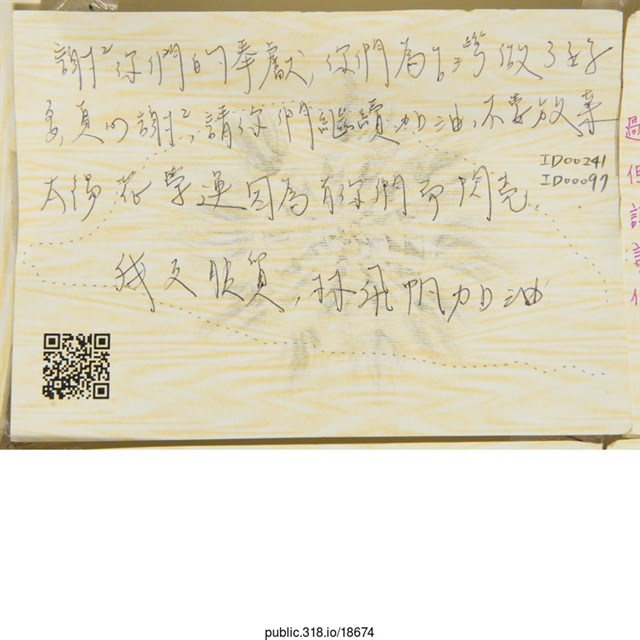 謝²你們的奉獻,你們為台灣做了好
多,真的謝²,請你們繼續加油,不要放棄
ID00241
ID00097
太陽花學運因為有你們而閃亮,
我反服貿,林飛帆加油
過
但
public.318.io/18674